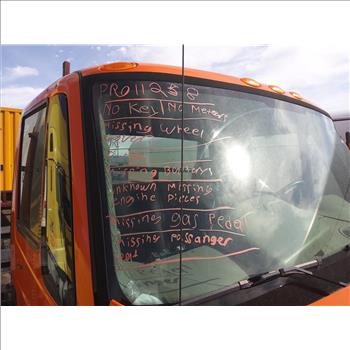 PRO11258
No Key No Meters
Missing Wheel
Missing Battery
unknown missing
engine pieces
Missing gas Pedal
Missing passanger
seat